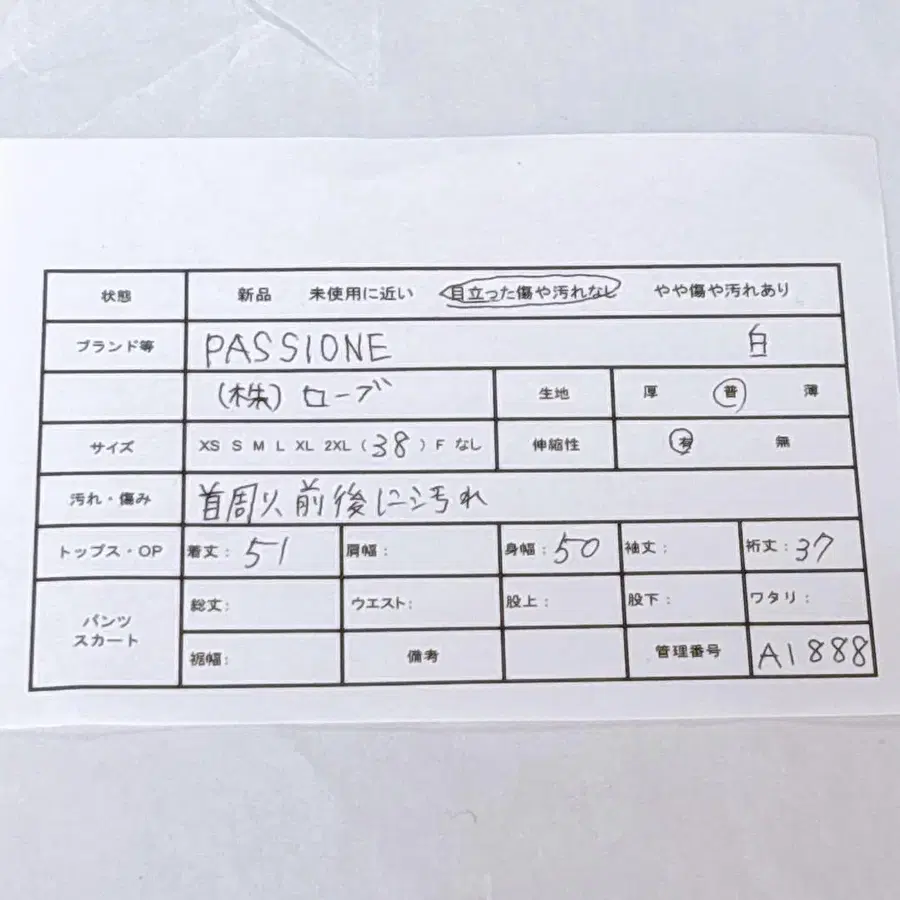 状態 新品 未使用に近い 目立った傷や汚れなし やや傷や汚れあり
ブランド等 PASSIONE 白
(株)ローブ 生地 厚 普 薄
サイズ XS S M L XL 2XL (38) F なし 伸縮性 有 無
汚れ・傷み 首周り、前後に汚れ
トップス・OP 着丈: 51 肩幅: 身幅: 50 袖丈: 裄丈: 37
パンツ スカート 総丈: ウエスト: 股上: 股下: ワタリ:
裾幅: 備考 管理番号 A1888